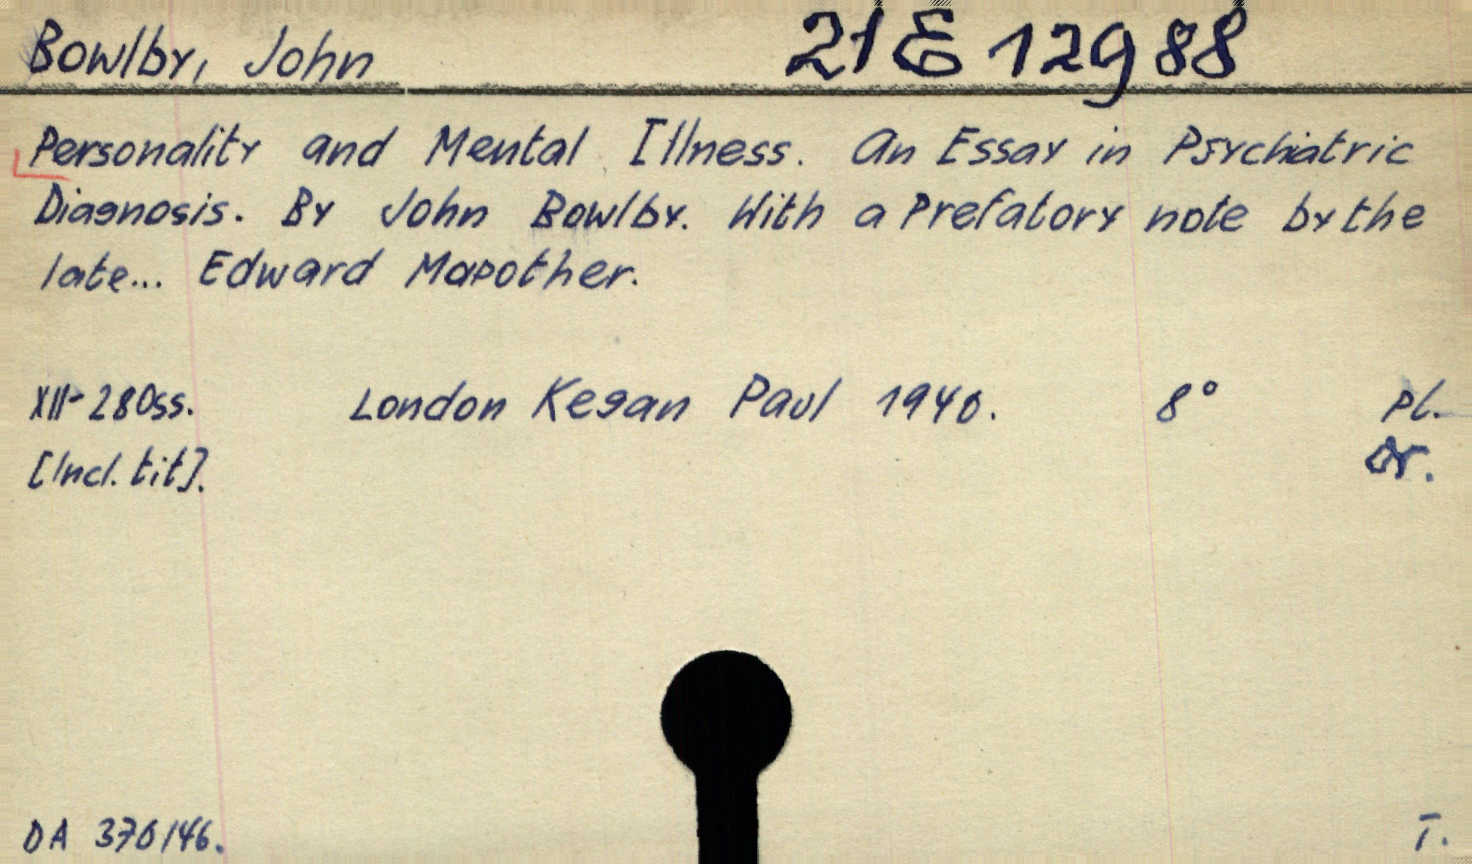 Bowlby, John 21 E 12988
Personality and Mental Illness. An Essay in Psychiatric
Diagnosis. By John Bowlby. With a Prefatory note by the
late... Edward Mapother.
XII-280ss. London Kegan Paul 1940. 8° pl.
[Incl. tit]. or.
DA 370/46. T.